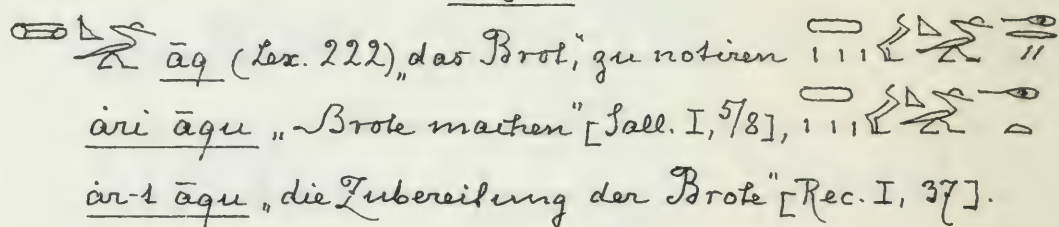 āq (Lex. 222) „das Brot“, zu notiren
ȧri āqu „Brote machen“ [Sall. I, 5/8],
ȧr-t āqu „die Zubereitung der Brote“ [Rec. I, 37].